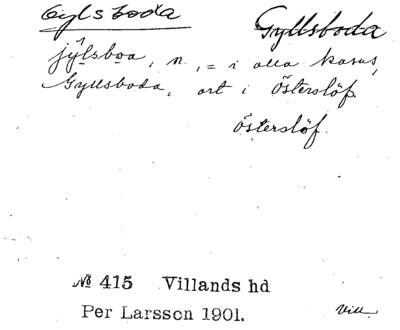 Gylsboda Gyllsboda
jy̆lsboa, n., = i alla kasus,
Gyllsboda, ort i Österslöf.
Österslöf.
№ 415 Villands hd
Per Larsson 1901. Vill.